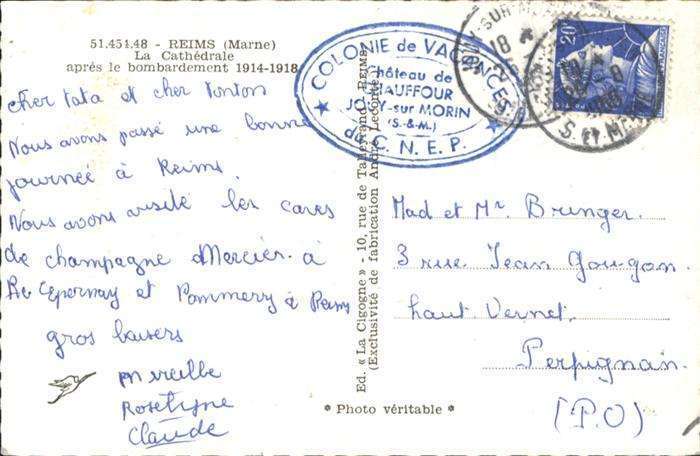 51.451.48 - REIMS (Marne)
La Cathédrale
après le bombardement 1914-1918
cher tata et cher tonton
Nous avons passé une bonne
journée à Reims.
Nous avons visité les caves
de champagne Mercier à
Epernay et Pommery à Reims
gros baisers
mireille
Rosetyne
Claude
Ed. « La Cigogne » - 10, rue de Talleyrand, REIMS
(Exclusivité de fabrication André Leconte)
* Photo véritable *
COLONIE de VACANCES
Château de
CHAUFFOUR
JOUY-sur MORIN
(S.-&-M.)
du C.N.E.P.
20F
18
S. et MARNE
Mad et Mr Bringer.
3 rue Jean Gougon.
haut Vernet.
Perpignan.
(P.O)